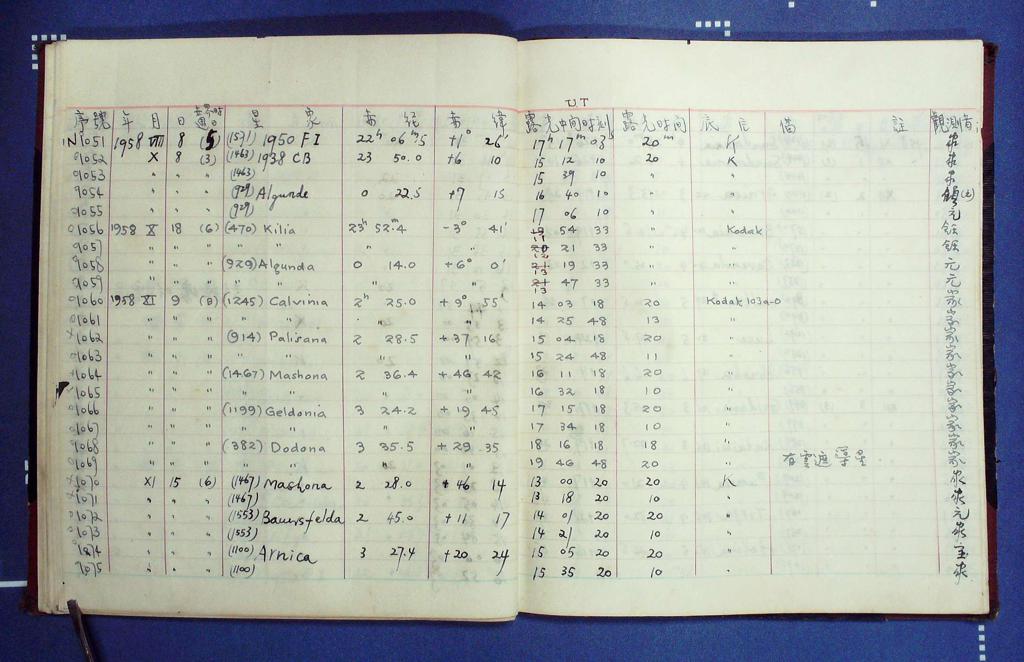 UT
序號 年 月 日 星 象 赤 經 赤 緯 露光中間時刻 露光時間 底片 備 註 觀測者
N1051 1958 VIII 8 (5) (1531) 1950 FI 22h 06m5 +1° 26' 17h 17m 03 20m K
1052 X 8 (3) (1463) 1938 CB 23 50.0 +6 10 15 12 10 20 K
1053 " " " (1463) 15 39 10 " "
1054 " " " (929) Algunde 0 22.5 +7 15 16 40 10 " "
1055 " " " (929) 17 06 10 " " 元
1056 1958 X 18 (6) (470) Kilia 23h 52m.4 -3° 41' 54 33 " Kodak
1057 " " " " " " 21 33 " "
1058 " " " (929) Algunda 0 14.0 +6° 0' 19 33 " " 元
1059 " " " " " " 47 33 " " 元
1060 1958 XI 9 (8) (1245) Calvinia 2h 25.0 +9° 55' 14 03 18 20 Kodak 103a-O 家
1061 " " " " " " 14 25 48 13 " 家
1062 " " " (914) Palisana 2 28.5 +37 16 15 04 18 20 " 家
1063 " " " " " " 15 24 48 11 " 家
1064 " " " (1467) Mashona 2 36.4 +46 42 16 11 18 20 " 家
1065 " " " " " " 16 32 18 10 " 家
1066 " " " (1199) Geldonia 3 24.2 +19 45 17 15 18 20 " 家
1067 " " " " " " 17 34 18 10 " 家
1068 " " " (382) Dodona 3 35.5 +29 35 18 16 18 18 " 家
1069 " " " " " " 19 46 48 20 " 有雲遮導星 家
1070 XI 15 (6) (1467) Mashona 2 28.0 +46 14 13 00 20 20 K
1071 " " " (1467) 13 18 20 10 "
1072 " " " (1553) Bauersfelda 2 45.0 +11 17 14 01 20 20 " 元
1073 " " " (1553) 14 21 20 10 "
1074 " " " (1100) Arnica 3 27.4 +20 24 15 05 20 20 "
1075 " " " (1100) 15 35 20 10 "